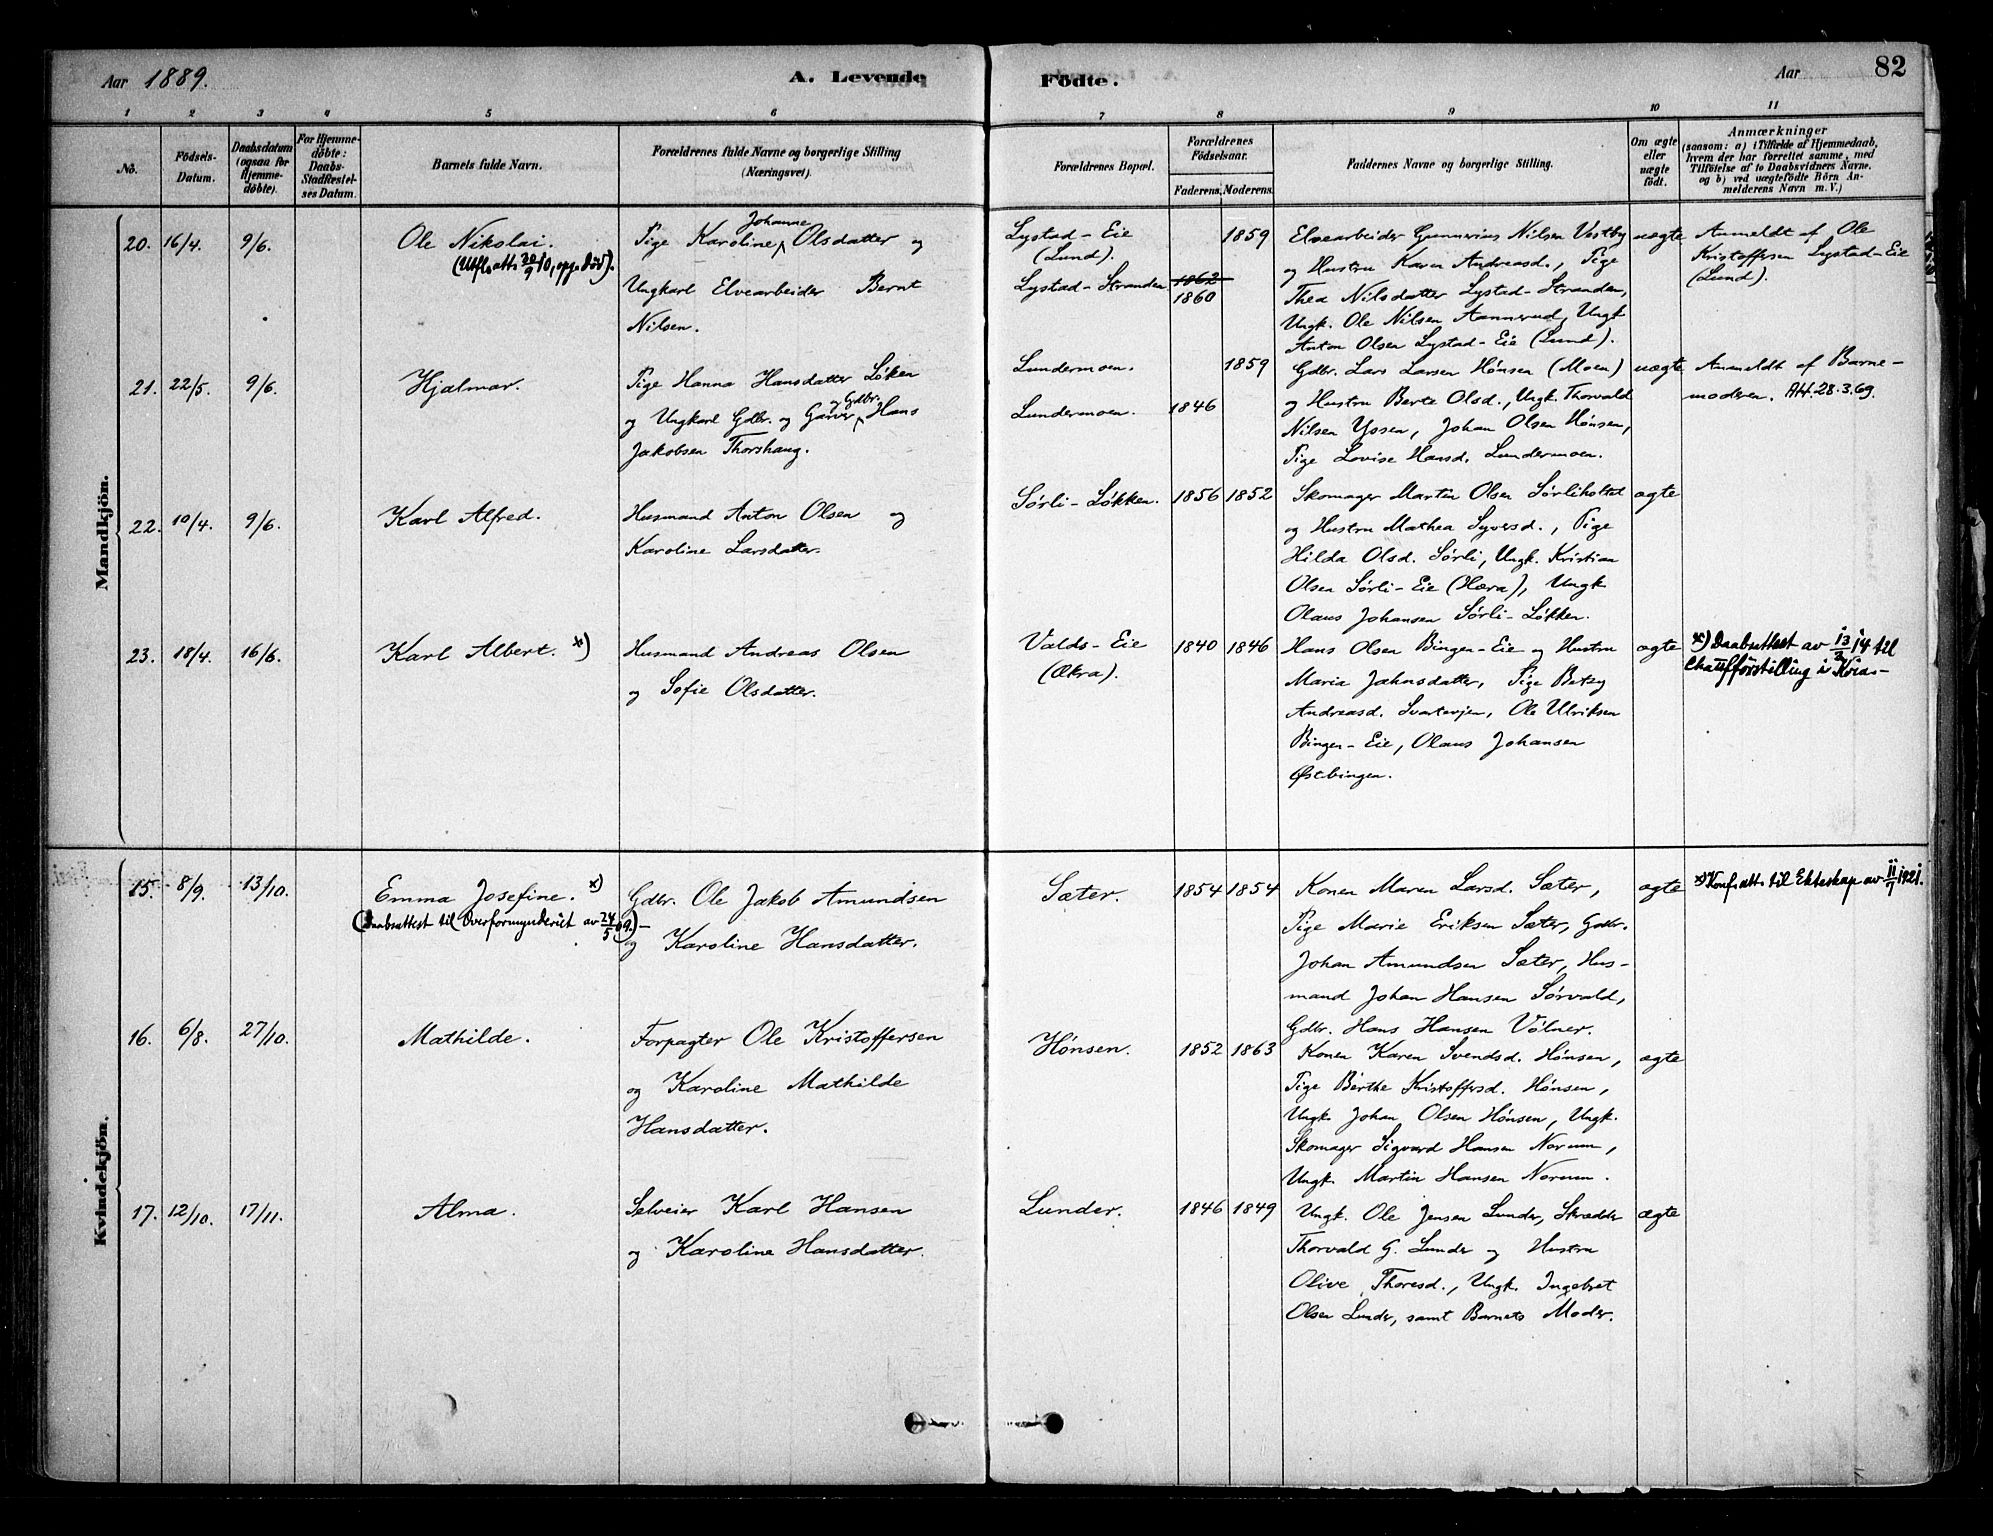 Aar 1889.
A. Levende
Födte.
Aar
82
1
2
3
4
5
6
7
8
9
10
11
No.
Födsels-
Datum.
Daabsdatum
(ogsaa for
Hjemme-
döbte).
For Hjemme-
döbte:
Daabs-
Stadfæstel-
ses Datum.
Barnets fulde Navn.
Forældrenes fulde Navne og borgerlige Stilling
(Næringsvei).
Forældrenes Bopæl.
Forældrenes
Födselsaar.
Faderens.
Moderens.
Faddernes Navne og borgerlige Stilling.
Om ægte
eller
uægte
født.
Anmærkninger
(saasom: a) i Tilfælde af Hjemmedaab,
hvem der har forrettet samme, med
Tilföielse af to Daabsvidners Navne.
og b) ved uægtefödte Börn An-
melderens Navn m. V.)
Mandkjön.
20. 16/4. 9/6.
Ole Nikolai.
(Utfl.att. 20/9 10, opg. død).
Johanne
Pige Karoline Olsdatter og
Ungkarl Elvearbeider Bernt
Nilsen.
Lystad-Eie
(Lund).
Lystad-Stranden
1862
1860
1859
Elvearbeider Gunnerius Nilsen Vestby
og Hustru Karen Andreasd., Pige
Thea Nilsdatter Lystad-Stranden,
Ungk. Ole Nilsen Aannerud, Ungk
Anton Olsen Lystad-Eie (Lund).
uægte
Anmeldt af Ole
Kristoffersen Lystad-Eie
(Lund).
21. 22/5. 9/6.
Hjalmar.
Pige Hanna Hansdatter Løken
og Gdbr.
og Ungkarl Gdbr. og Garver Hans
Jakobsen Thorshaug.
Lundermoen.
Lundermoen.
1846
1859
Gdbr. Lars Larsen Hønsen (Moen)
og Hustru Berte Olsd., Ungk. Thorvald
Nilsen Yssen, Johan Olsen Hønsen,
Pige Lovise Hansd. Lundermoen.
uægte
Anmeldt af Barne-
moderen. Att. 28.3.69.
22. 10/4. 9/6.
Karl Alfred.
Husmand Anton Olsen og
Karoline Larsdatter.
Sørli-Løkken.
1856 1852
Skomager Martin Olsen Sørliholtet
og Hustru Mathea Syversd., Pige
Hilda Olsd. Sørli, Ungk. Kristian
Olsen Sørli-Eie (Hæra), Ungk
Olaus Johansen Sørli-Løkken.
ægte
23. 18/4. 16/6.
Karl Albert. x)
Husmand Andreas Olsen
og Sofie Olsdatter.
Valds-Eie
(Ækra).
1840 1846
Hans Olsen Bingen-Eie og Hustru
Maria Jahnsdatter, Pige Betzy
Andreasd. Svartevjen, Ole Ulriksen
Bingen-Eie, Olaus Johansen
Østbingen.
ægte
x) Daabsattest av 13/2 14 til
Chaufførstilling i Kria-
Kvindekjön.
15. 8/9. 13/10.
Emma Josefine. x)
(Daabsattest til Overformynderiet av 24/5 09.)
Gdbr. Ole Jakob Amundsen
og Karoline Hansdatter.
Sæter.
1854 1854
Konen Maren Larsd. Sæter,
Pige Marie Eriksen Sæter, Gdbr.
Johan Amundsen Sæter, Hus-
mand Johan Hansen Sørvald,
Gdbr. Hans Hansen Vølner.
ægte
x) Konf.att. til Ekteskap av 11/7 1921.
16. 6/8. 27/10.
Mathilde.
Forpagter Ole Kristoffersen
og Karoline Mathilde
Hansdatter.
Hønsen.
1852 1863
Konen Karen Svendsd. Hønsen,
Pige Berthe Kristoffersd. Hønsen,
Ungk. Johan Olsen Hønsen, Ungk.
Skomager Sigvard Hansen Norum,
Ungk. Martin Hansen Norum.
ægte
17. 12/10. 17/11.
Alma.
Selveier Karl Hansen
og Karoline Hansdatter.
Lunder.
1846 1849
Ungk. Ole Jensen Lunder, Skrædder
Thorvald G. Lunder og Hustru
Olive Thoresd., Ungk. Ingebret
Olsen Lunder, samt Barnets Moder.
ægte